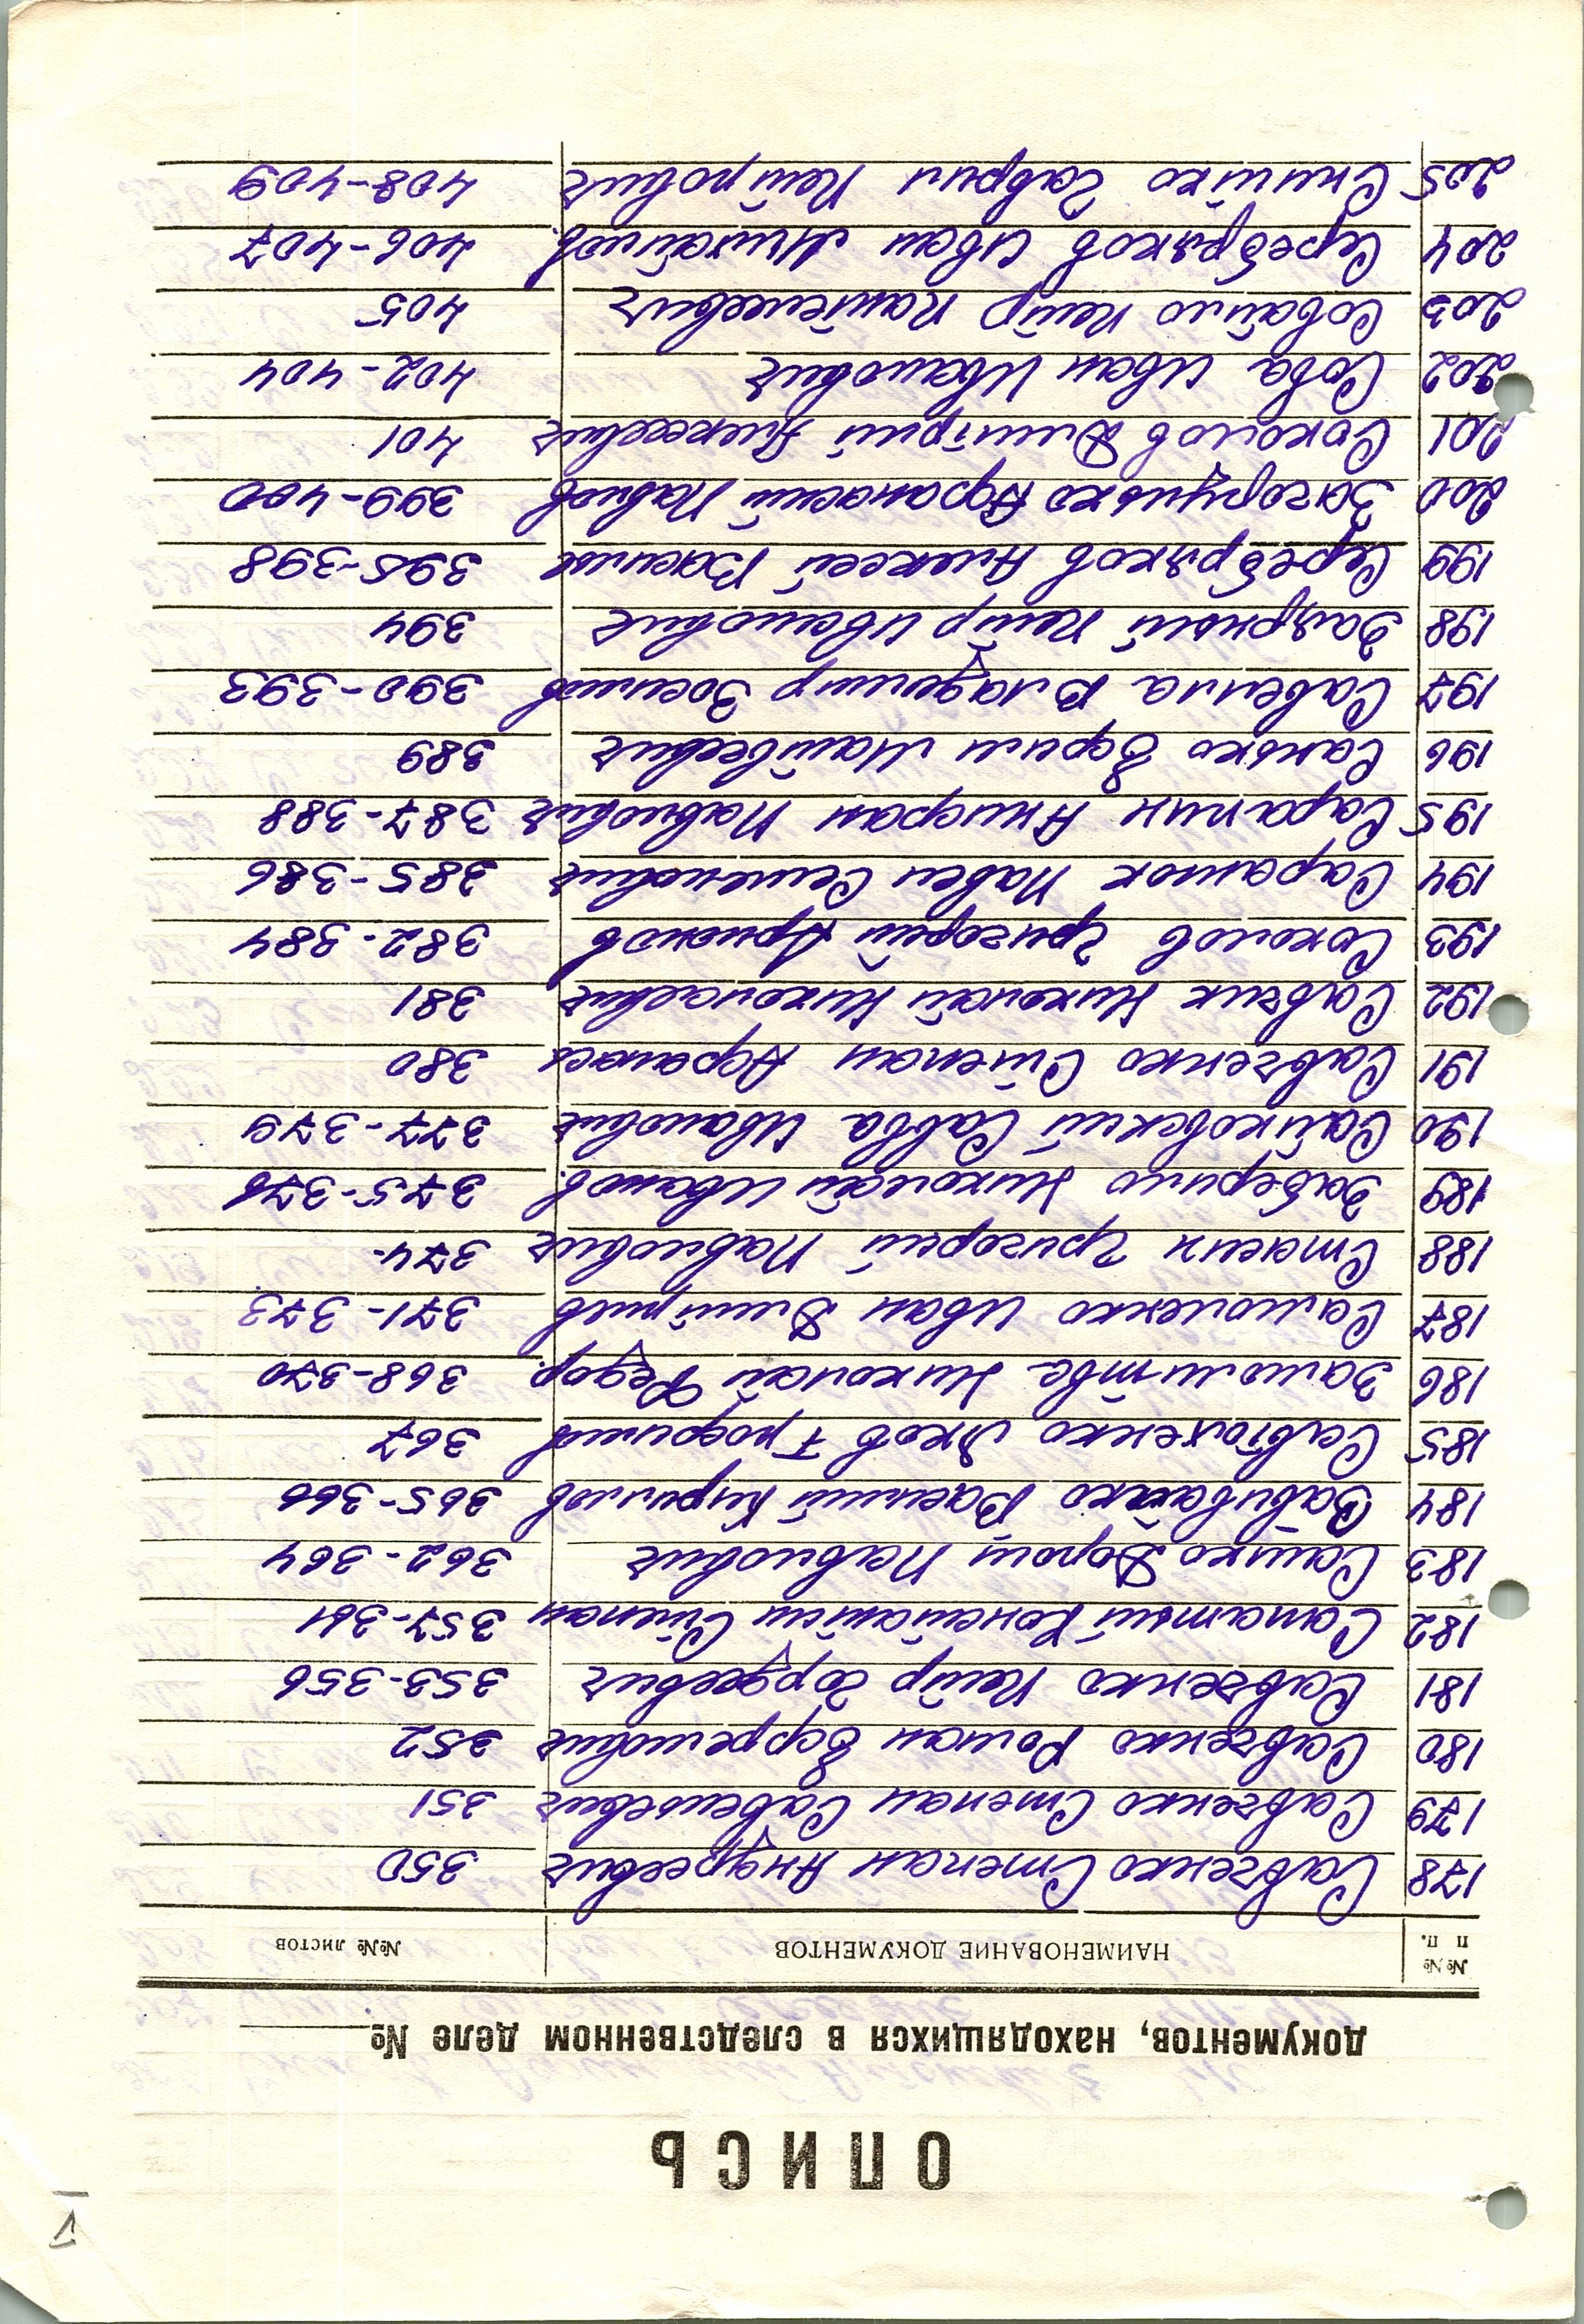 ОПИСЬ
документов, находящихся в следственном деле №
№№ п п. НАИМЕНОВАНИЕ ДОКУМЕНТОВ №№ листов
178 Савченко Степан Андреевич 350
179 Савченко Степан Савельевич 351
180 Савченко Роман Ефремович 352
181 Савченко Петр Гордеевич 353-356
182 Сапатый Констайтин Степан 357-361
183 Сашко Дорош Павлович 362-364
184 Василий Кирилов 365-366
185 Савтоженко Яков Трофимов 367
186 Замолитва Николай Федор. 368-370
187 Самоленко Иван Дмитриев 371-373
188 Стасен Григорий Павлович 374
189 Заверило Николай Иванов. 375-376
190 Сайковский Савва Иванович 377-379
191 Савченко Степан Афанась 380
192 Савчик Николай Николаевич 381
193 Соколов Григорий Арионов 382-384
194 Сарамок Павел Семенович 385-386
195 Сарапин Анифран Павлович 387-388
196 Санько Ефрим Матвеевич 389
197 Савелла Владимир Зосимов 390-393
198 Заярный Петр Иванович 394
199 Серебряков Алексей Василье 395-398
200 Загорулько Афанасий Павлов 399-400
201 Соколов Дмитрий Алексеевич 401
202 Сова Иван Иванович 402-404
203 Совайло Петр Пантелеевич 405
204 Серебряков Иван Михайлов. 406-407
205 Спитко Гаврил Петрович 408-409